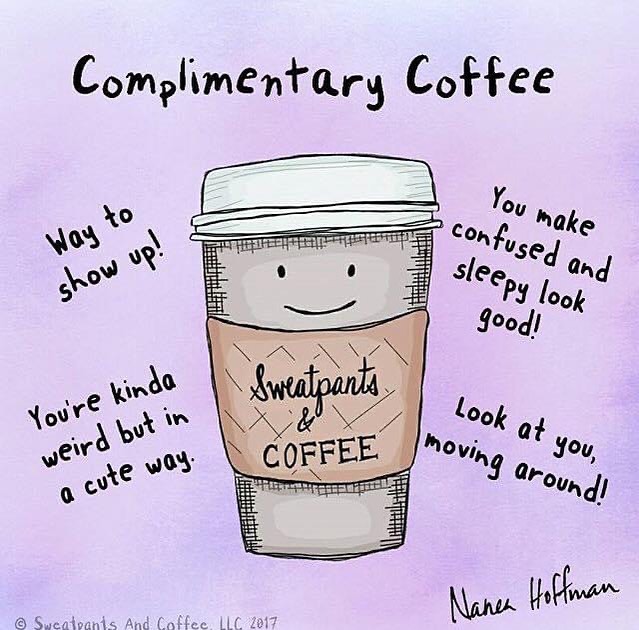 Complimentary Coffee
Way to
show up!
You make
confused and
sleepy look
good!
You're kinda
weird but in
a cute way.
Sweatpants
&
COFFEE
Look at you,
moving around!
Nanea Hoffman
© Sweatpants And Coffee, LLC 2017